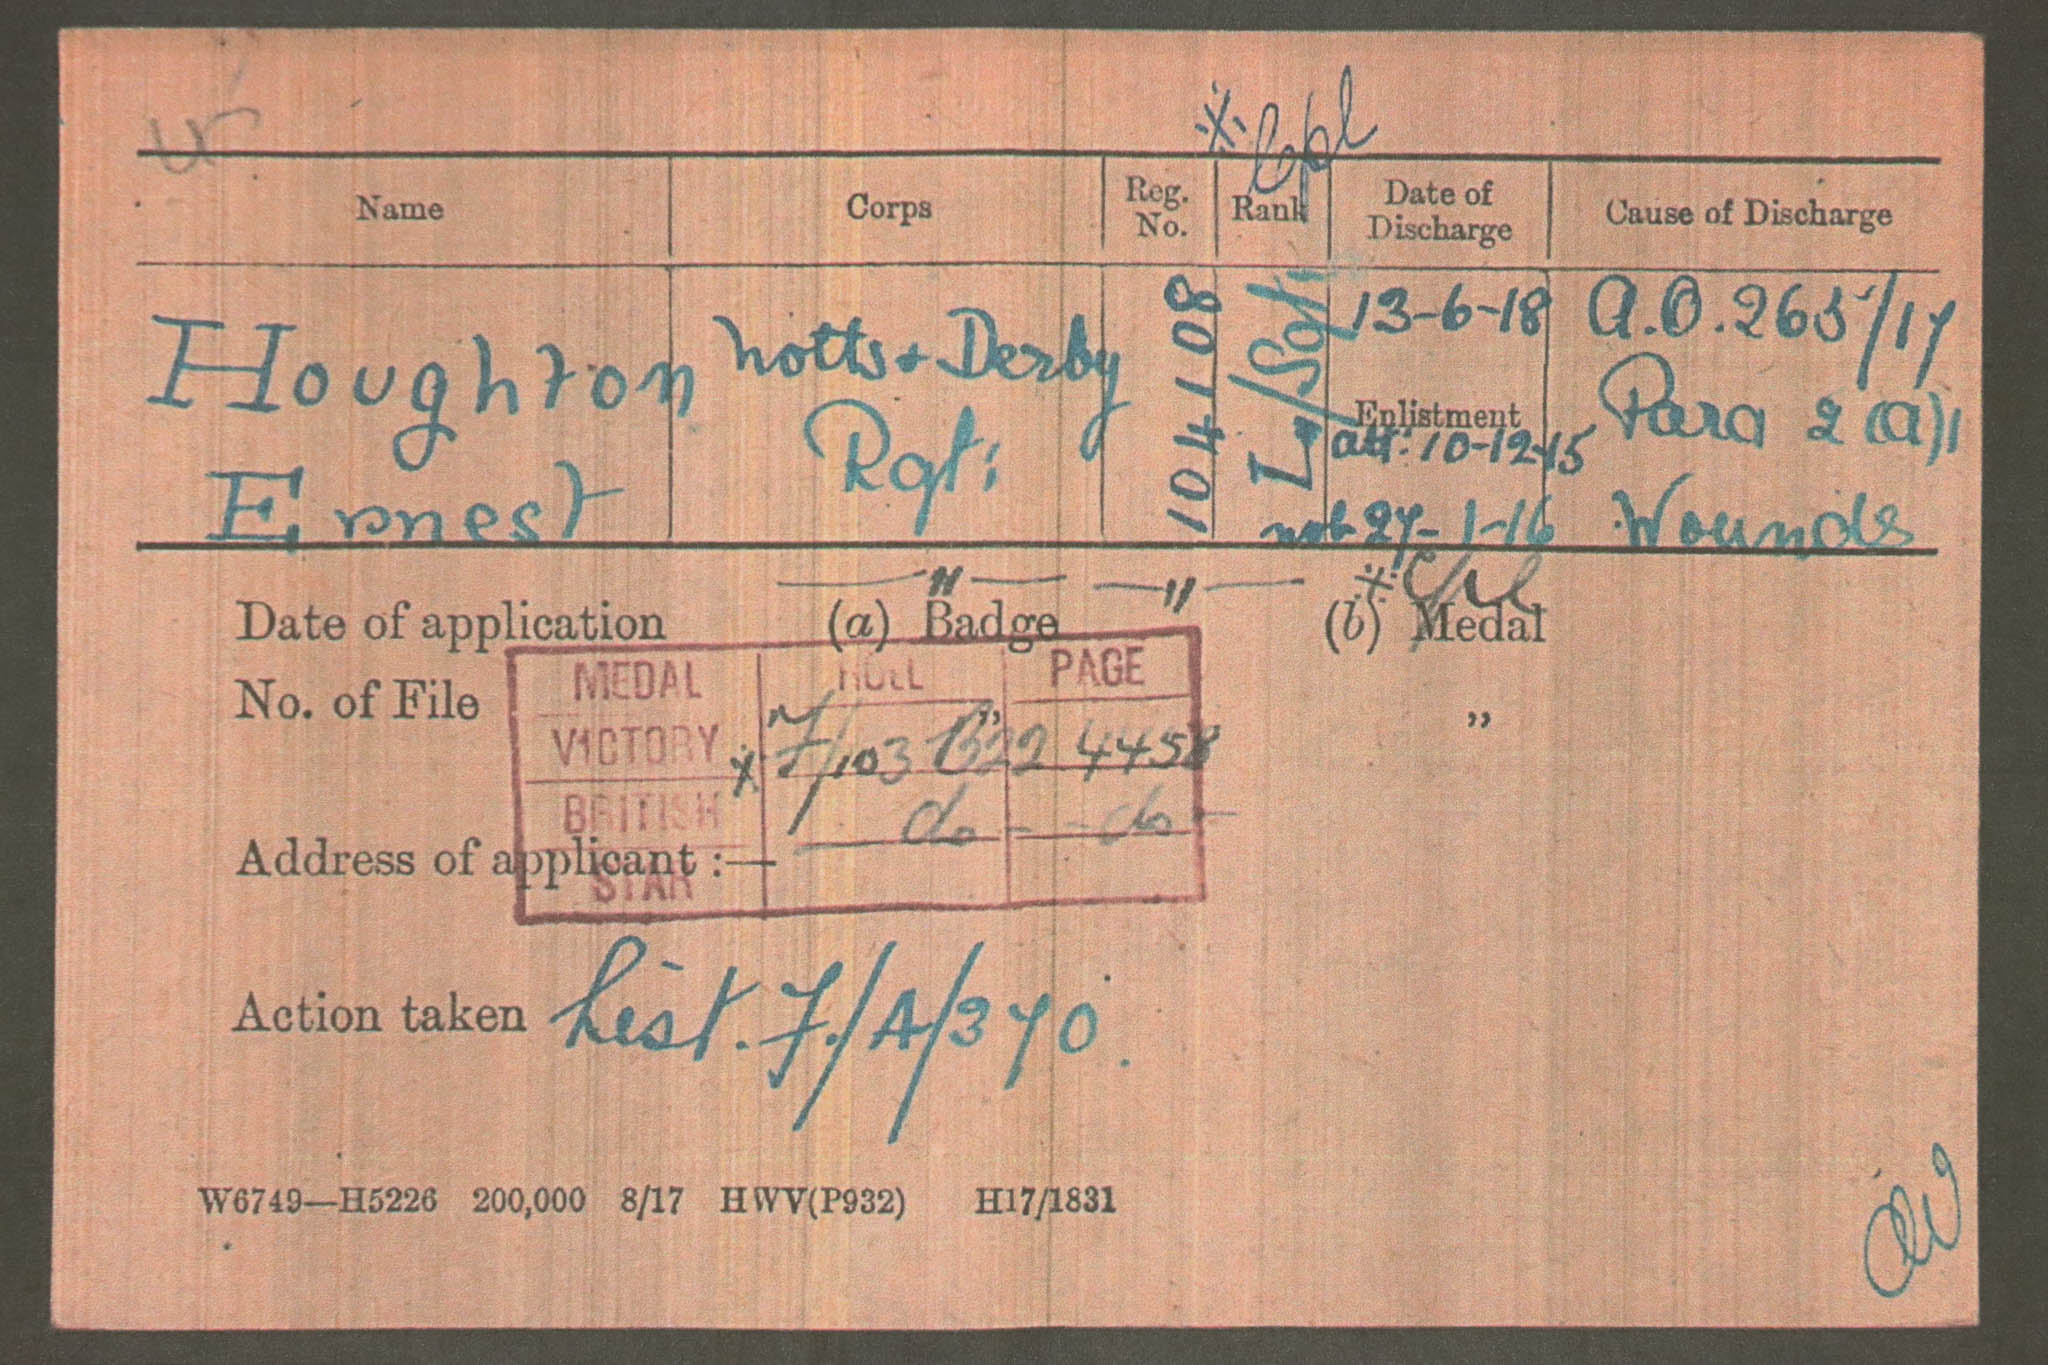 ※ Cpl
Name Corps Reg. No. Rank Date of Discharge Cause of Discharge
Houghton Notts + Derby 104108 L/Sgt. 13-6-18 A.O. 265/17
Enlistment Para 2 (a) 1
Ernest Rgt: att: 10-12-15
27-1-16 Wounds
" "
Date of application (a) Badge (b) Medal
No. of File " "
MEDAL ROLL PAGE
VICTORY ※ F/103 B22 4458
BRITISH do - do -
STAR
Address of applicant :—
Action taken List. F./A/370.
W6749—H5226 200,000 8/17 HWV(P932) H17/1831